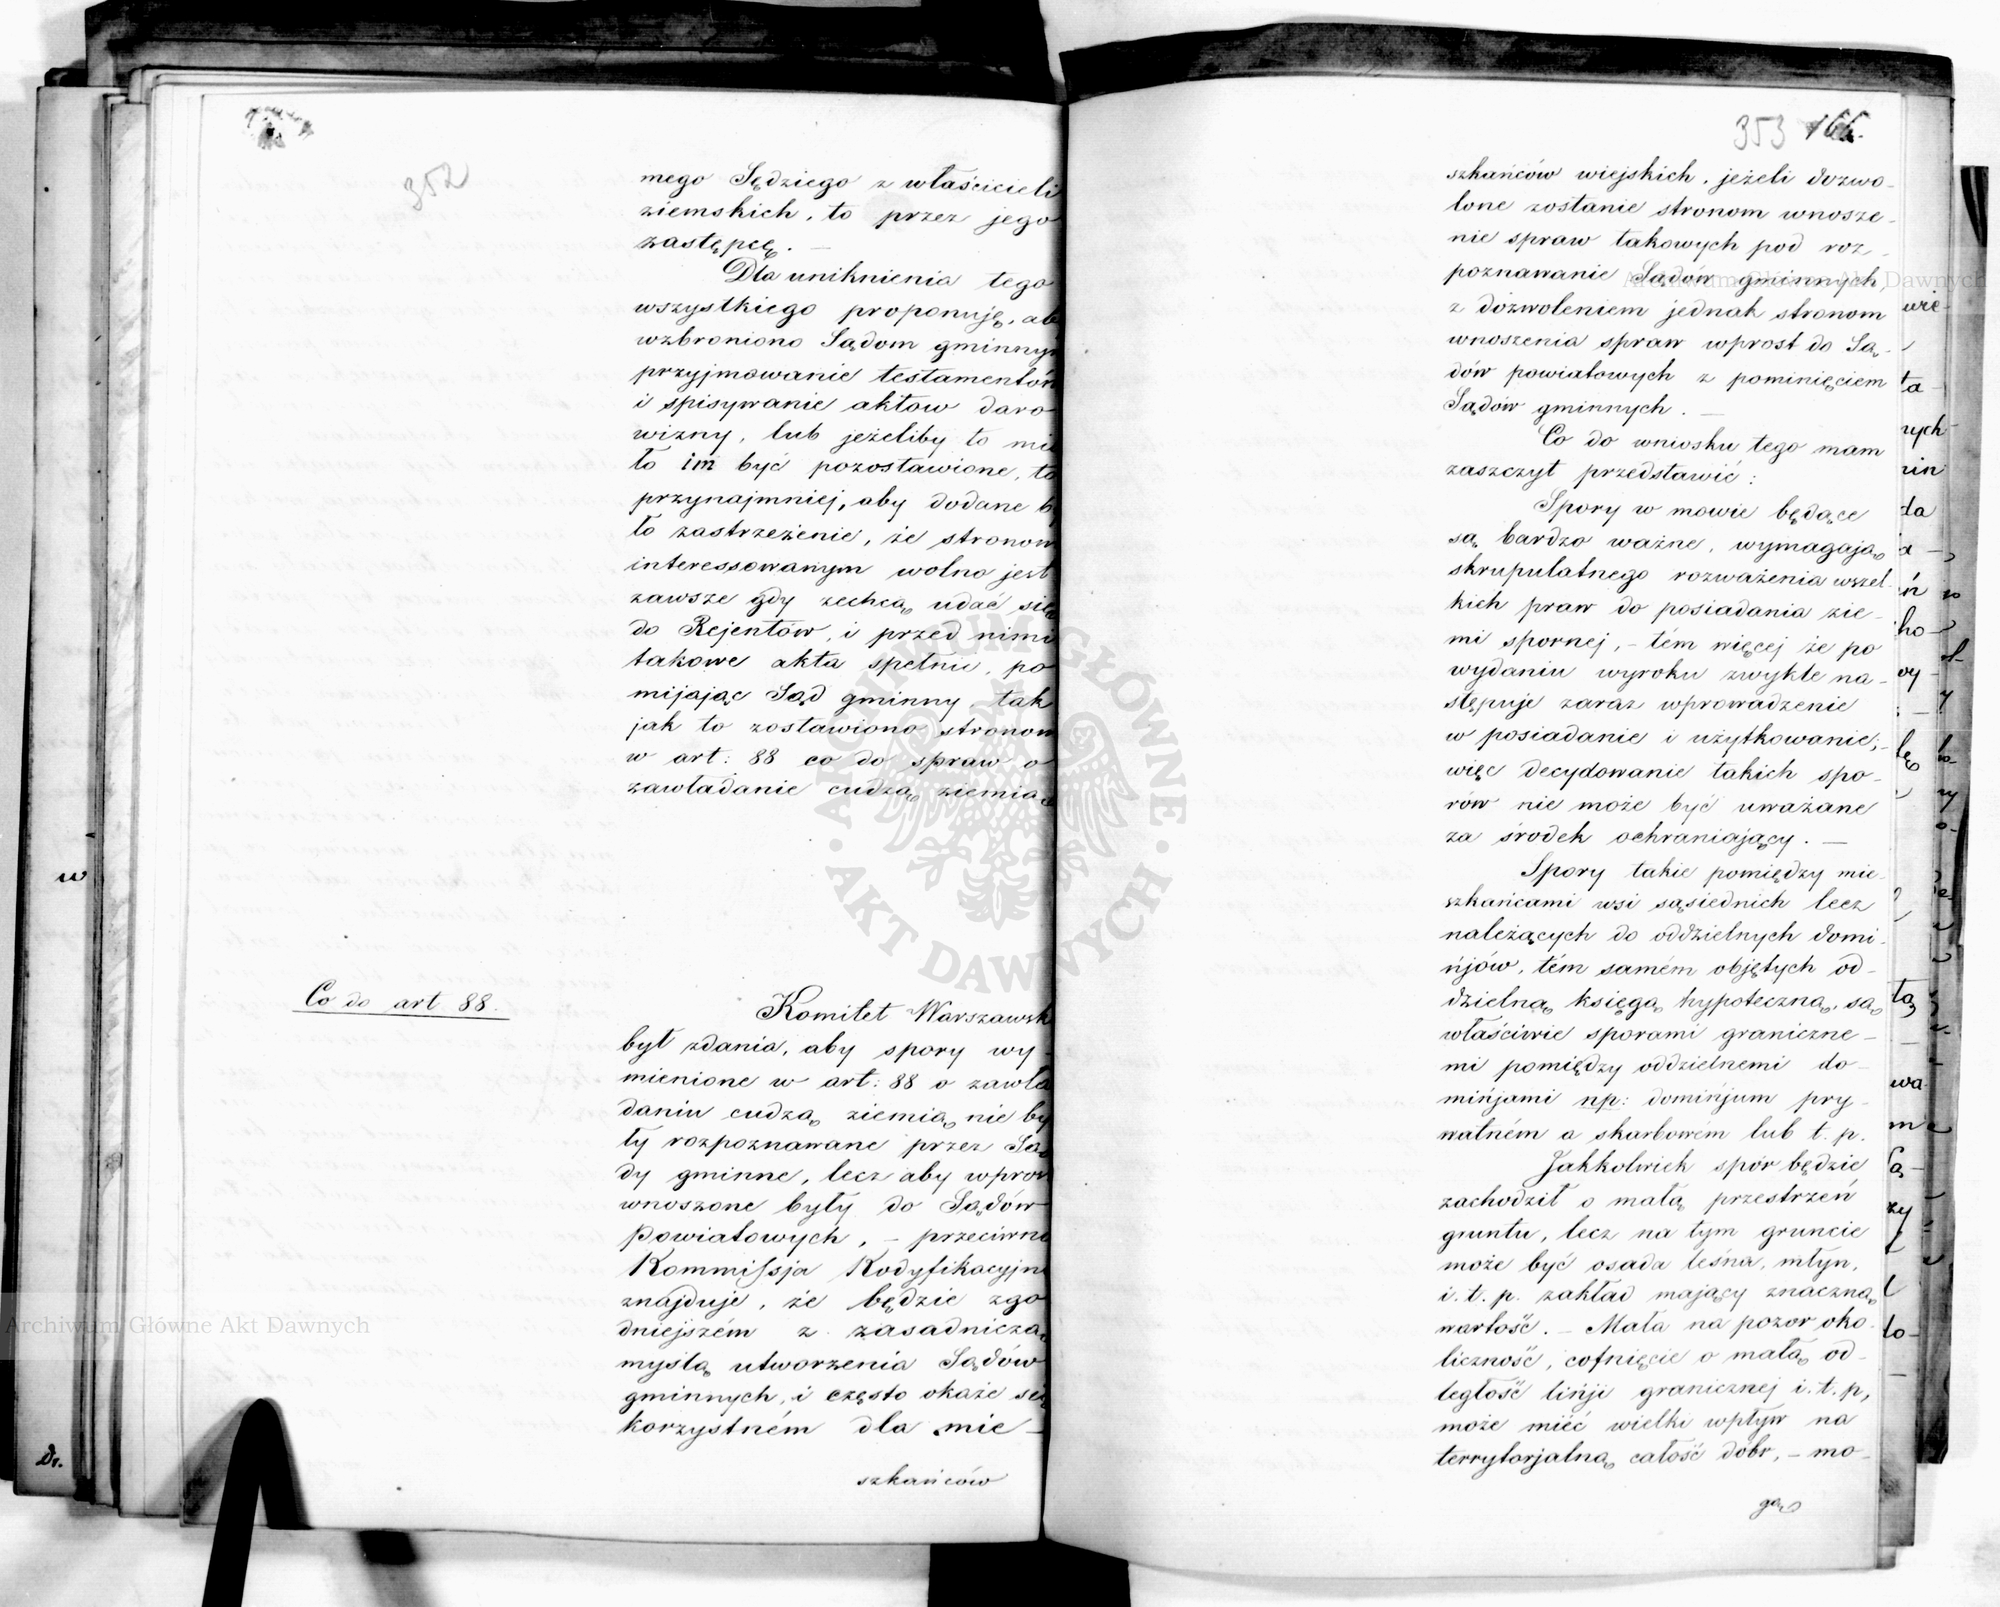 352
mego Sędziego z właścicieli
ziemskich, to przez jego
zastępcę. —
Dla uniknienia tego
wszystkiego proponuję, ab
wzbroniono Sądom gminny
przyjmowanie testamentów
i spisywanie aktow daro
wizny, lub jeżeliby to mi
ło im być pozostawione, to
przynajmniej, aby dodane b
ło zastrzeżenie, że stronom
interessowanym wolno jest
zawsze gdy zechcą udać się
do Rejentów, i przed nimi
takowe akta spełnić, po
mijając Sąd gminny, tak
jak to zostawiono stronom
w art: 88 co do spraw o
zawładanie cudzą ziemią
Co do art 88.
Komitet Warszawsk
był zdania, aby spory wy-
mienione w art: 88 o zawła
daniu cudzą ziemią nie by
ły rozpoznawane przez Są
dy gminne, lecz aby wpros
wnoszone były do Sądów
Powiatowych, – przeciwni
Kommissja Kodyfikacyjn
znajduje, że będzie zgo
dniejszém z zasadniczą
myslą utworzenia Sądów
gminnych, i często okaże się
korzystném dla mie-
szkańców
353 166.
szkańców wiejskich, jeżeli dozwo-
lone zostanie stronom wnosze-
nie spraw takowych pod roz-
poznawanie Sądów gminnych,
z dozwoleniem jednak stronom
wnoszenia spraw wprost do Są-
dów powiatowych z pominięciem
Sądów gminnych. —
Co do wniosku tego mam
zaszczyt przedstawić:
Spory w mowie będące
są bardzo ważne, wymagają
skrupulatnego rozważenia wszel-
kich praw do posiadania zie-
mi spornej, – tém więcej że po
wydaniu wyroku zwykle na-
stępuje zaraz wprowadzenie
w posiadanie i użytkowanie;-
więc decydowanie takich spo-
rów nie może być uważane
za środek ochraniający. —
Spory takie pomiędzy mie-
szkańcami wsi sąsiednich lecz
należących do oddzielnych domi-
ńjów, tém samém objętych od-
dzielną księgą hypoteczną, są
właściwie sporami graniczne-
mi pomiędzy oddzielnemi do-
mińjami np: domińjum pry-
watném a skarbowém lub t. p.
Jakkolwiek spór będzie
zachodził o małą przestrzeń
gruntu, lecz na tym gruncie
może być osada leśna, młyn,
i. t. p. zakład mający znaczną
wartość. – Mała na pozor oko-
liczność, cofnięcie o małą od-
ległość linji granicznej i. t. p,
może mieć wielki wpływ na
terrytorjalną całość dóbr, – mo-
gą
Archiwum Główne Akt Dawnych
Archiwum Główne Akt Dawnych
ARCHIWUM GŁÓWNE · AKT DAWNYCH ·